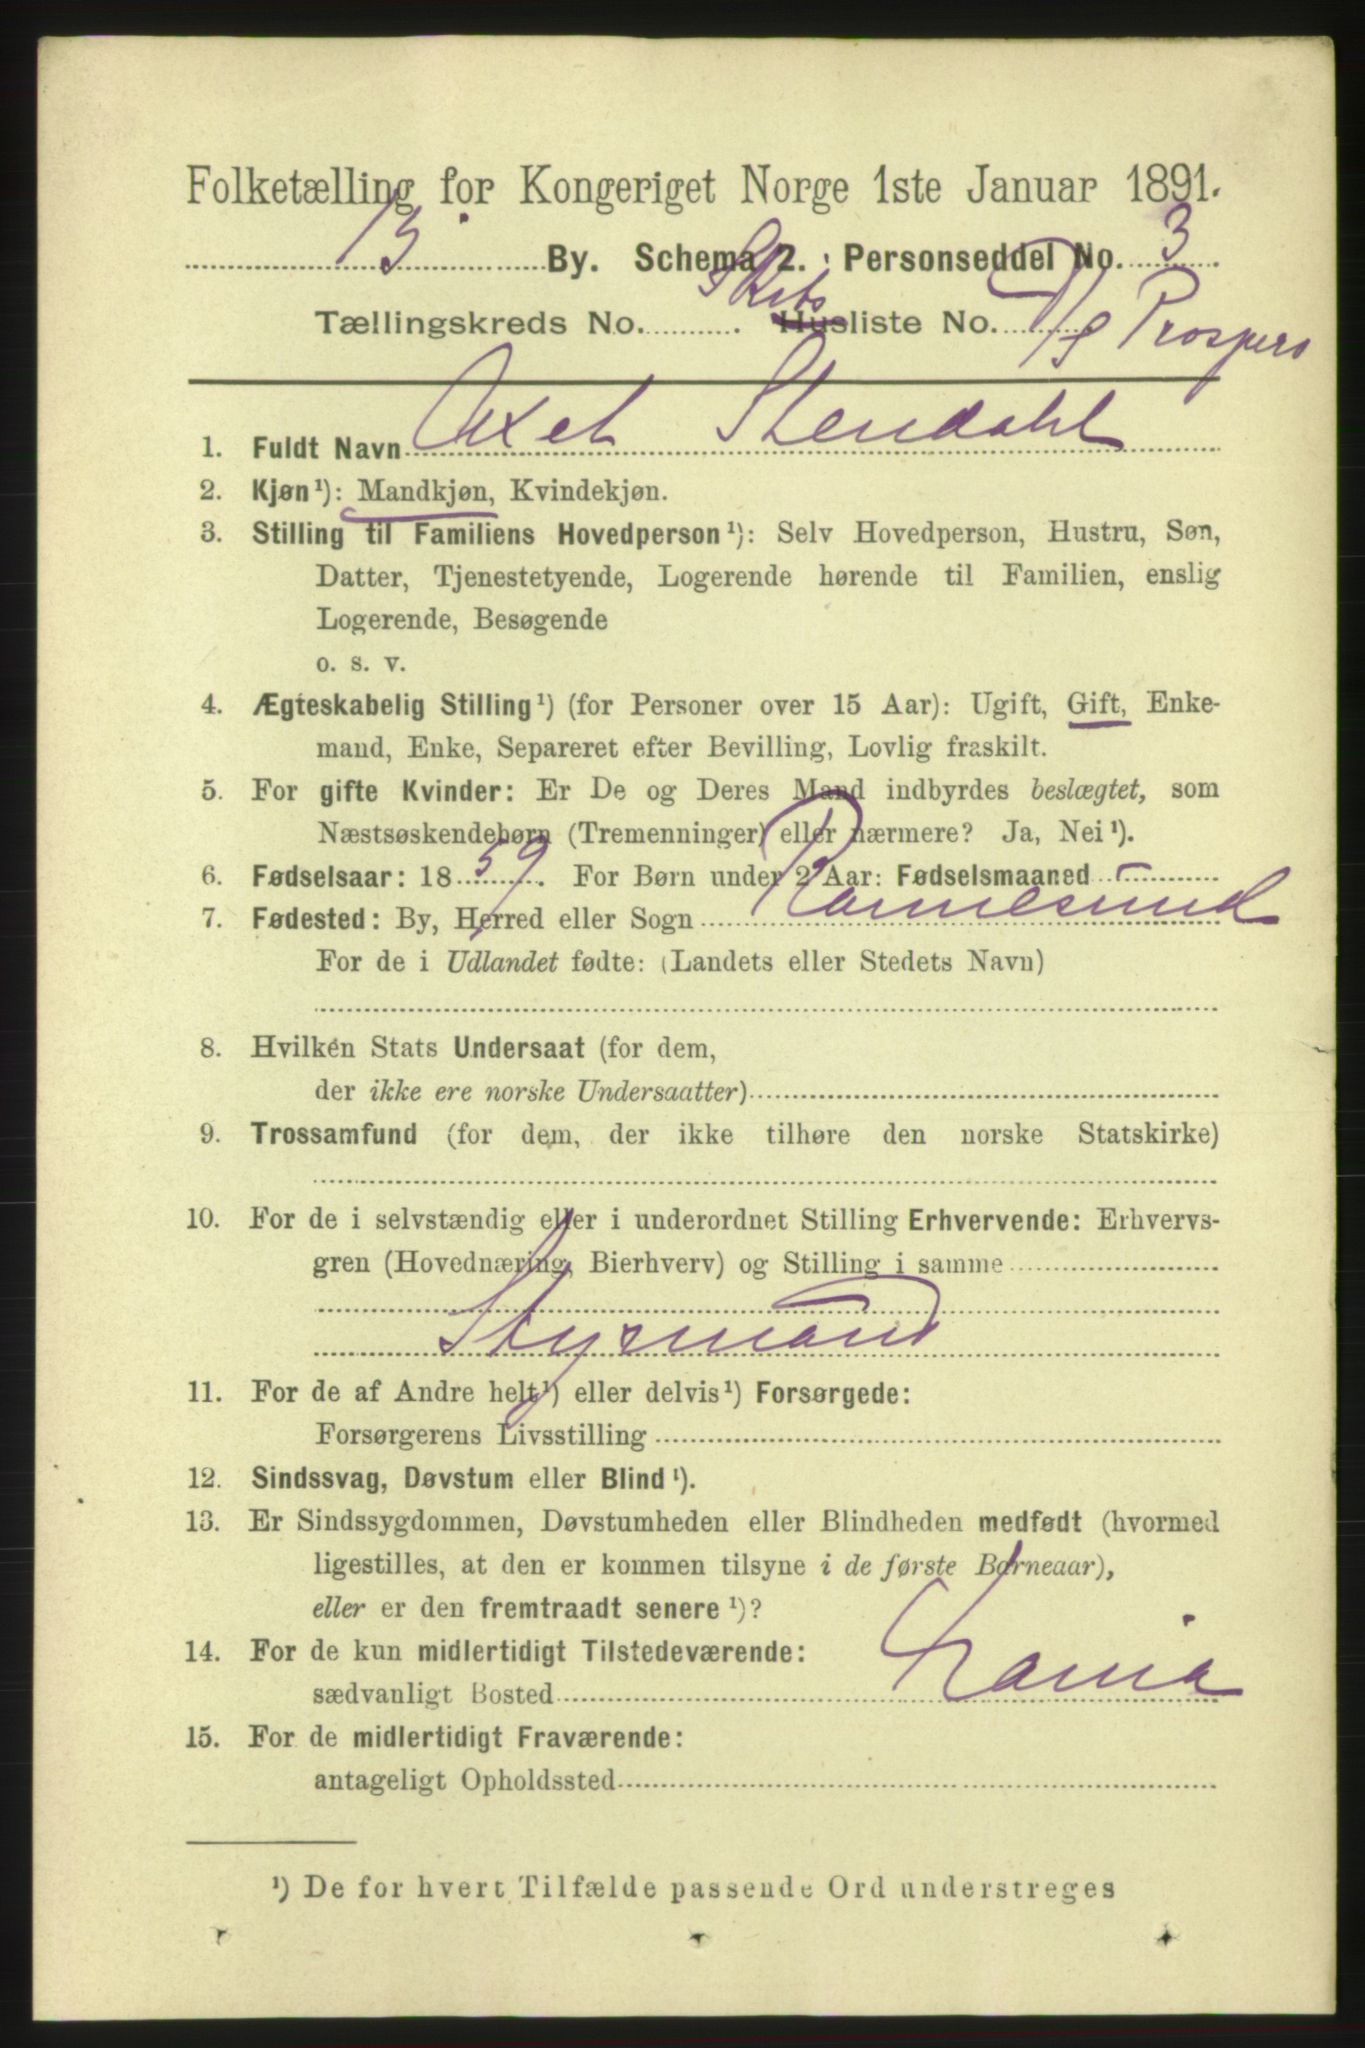 Folketælling for Kongeriget Norge 1ste Januar 1891.
By. Schema 2. Personseddel No. 3
Tællingskreds No. Skibsliste No. D/S Prospero
1. Fuldt Navn Axel Stendahl
2. Kjøn¹): Mandkjøn, Kvindekjøn.
3. Stilling til Familiens Hovedperson¹): Selv Hovedperson, Hustru, Søn,
Datter, Tjenestetyende, Logerende hørende til Familien, enslig
Logerende, Besøgende
o. s. v.
4. Ægteskabelig Stilling¹) (for Personer over 15 Aar): Ugift, Gift, Enke-
mand, Enke, Separeret efter Bevilling, Lovlig fraskilt.
5. For gifte Kvinder: Er De og Deres Mand indbyrdes beslægtet, som
Næstsøskendebørn (Tremenninger) eller nærmere? Ja, Nei¹).
6. Fødselsaar: 1859. For Børn under 2 Aar: Fødselsmaaned
7. Fødested: By, Herred eller Sogn
For de i Udlandet fødte: (Landets eller Stedets Navn)
8. Hvilken Stats Undersaat (for dem,
der ikke ere norske Undersaatter)
9. Trossamfund (for dem, der ikke tilhøre den norske Statskirke)
10. For de i selvstændig eller i underordnet Stilling Erhvervende: Erhvervs-
gren (Hovednæring, Bierhverv) og Stilling i samme
Styrmand
11. For de af Andre helt¹) eller delvis¹) Forsørgede:
Forsørgerens Livsstilling
12. Sindssvag, Døvstum eller Blind¹).
13. Er Sindssygdommen, Døvstumheden eller Blindheden medfødt (hvormed
ligestilles, at den er kommen tilsyne i de første Barneaar),
eller er den fremtraadt senere¹)?
14. For de kun midlertidigt Tilstedeværende:
sædvanligt Bosted
15. For de midlertidigt Fraværende:
antageligt Opholdssted
¹) De for hvert Tilfælde passende Ord understreges